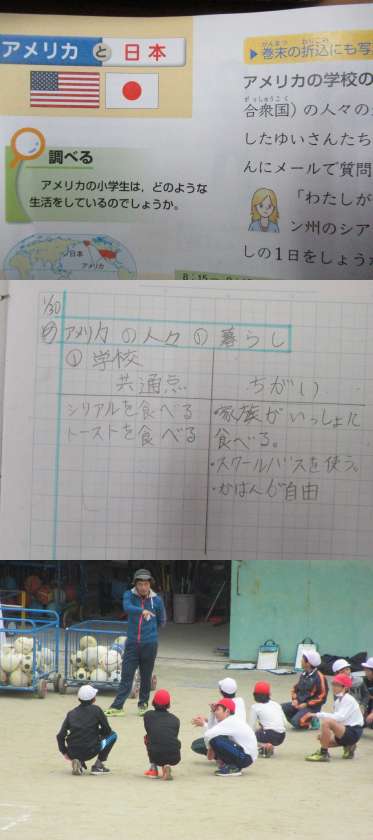 アメリカと日本
調べる
アメリカの小学生は，どのような
生活をしているのでしょうか。
日本
アメリカ
かんまつ おりこみ
▶巻末の折込にも写
アメリカの学校の
がっしゅうこく
合衆国）の人々の
したゆいさんたち
んにメールで質問
「わたしが
ン州のシア
しの1日をしょう
8：15
1/30
アメリカの人々の暮らし
①学校
共通点
ちがい
シリアルを食べる
トーストを食べる
・家族がいっしょに
食べる。
・スクールバスを使う。
・かばんが自由